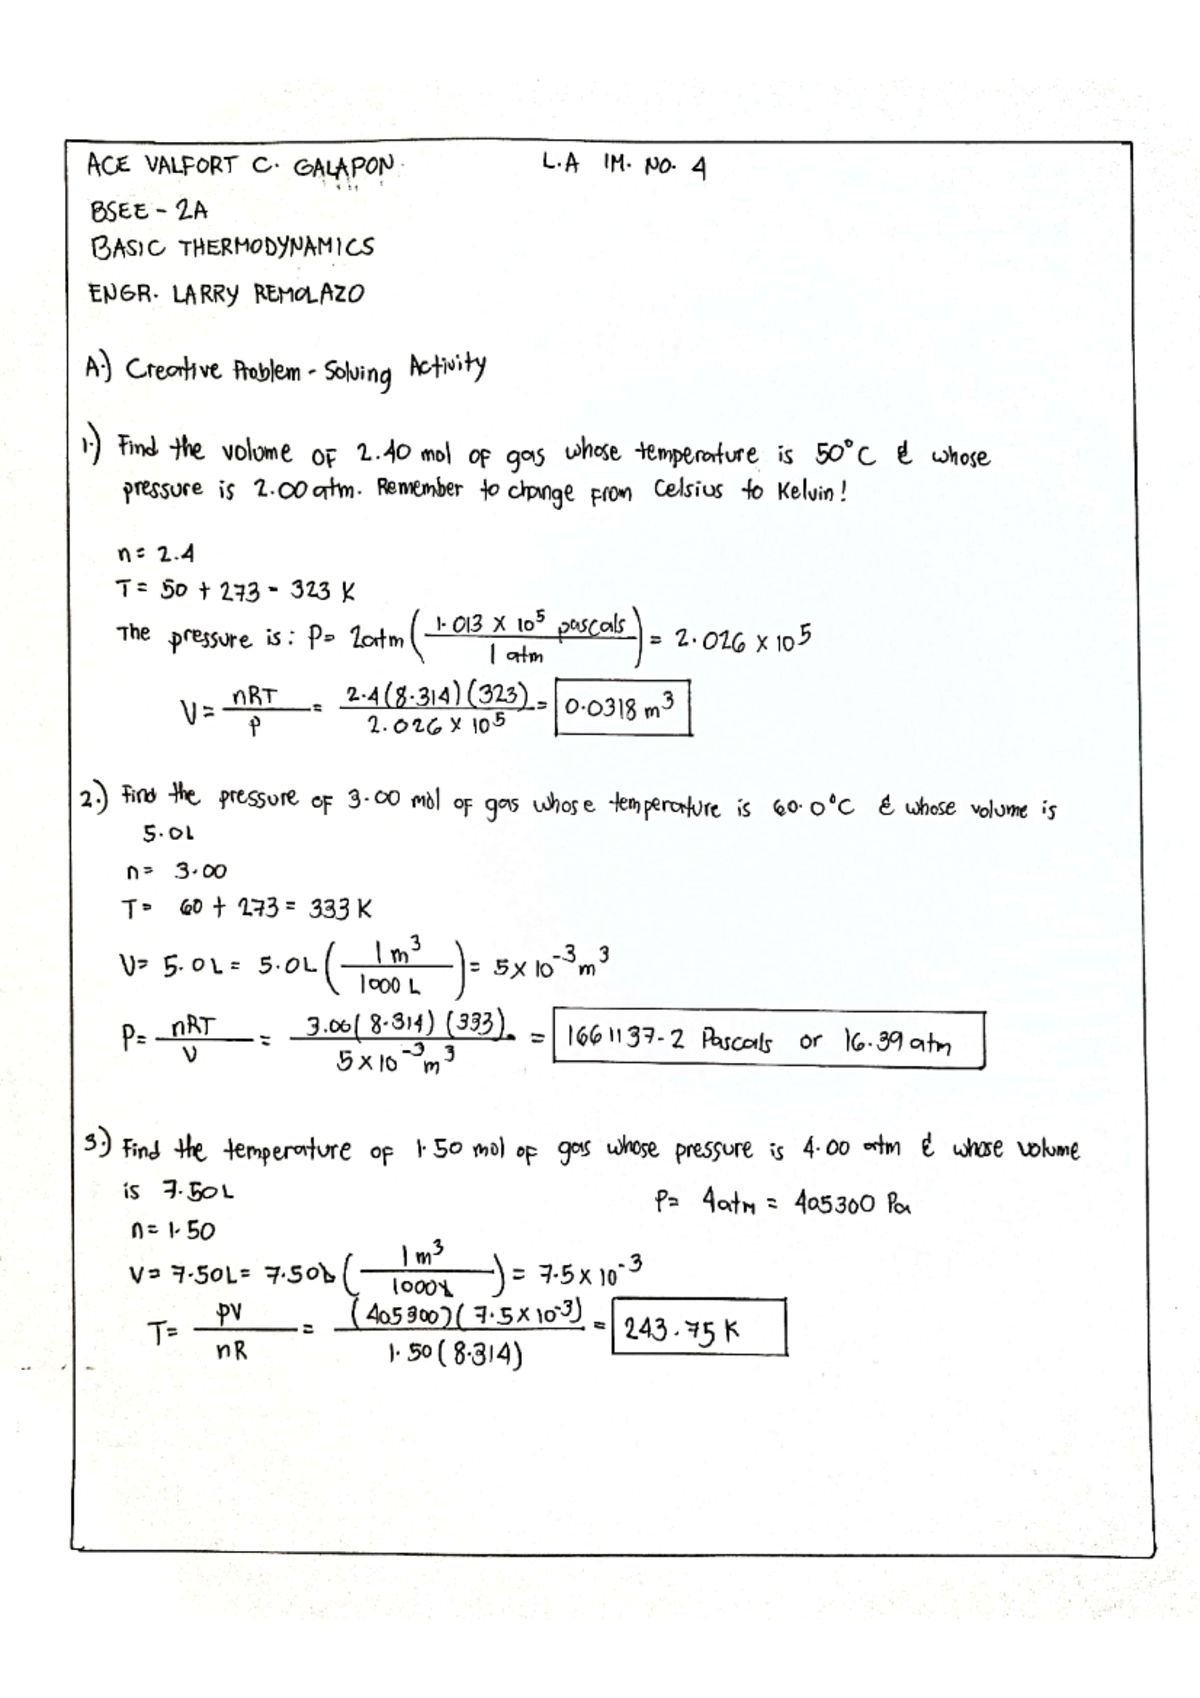 ACE VALFORT C. GALAPON. L.A IM. NO. 4
BSEE - 2A
BASIC THERMODYNAMICS
ENGR. LARRY REMOLAZO
A.) Creative Problem - Solving Activity
1.) Find the volume of 2.40 mol of gas whose temperature is 50°C & whose
pressure is 2.00 atm. Remember to change from Celsius to Kelvin!
n = 2.4
T = 50 + 273 - 323 K
The pressure is: P= 2atm (1.013 X 10^5 pascals / 1 atm) = 2.026 x 10^5
V = nRT / P = 2.4(8.314)(323) / 2.026 X 10^5 = 0.0318 m^3
2.) Find the pressure of 3.00 mol of gas whose temperature is 60.0°C & whose volume is
5.0L
n= 3.00
T= 60 + 273 = 333 K
V= 5.0L = 5.0L (1 m^3 / 1000 L) = 5 x 10^-3 m^3
P= nRT / V = 3.00(8.314)(333). / 5 x 10^-3 m^3 = 1661137.2 Pascals or 16.39 atm
3.) Find the temperature of 1.50 mol of gas whose pressure is 4.00 atm & whose volume
is 7.50L P= 4atm = 405300 Pa
n= 1.50
V= 7.50L= 7.50L (1 m^3 / 1000L) = 7.5 x 10^-3
T= PV / nR = (405300)(7.5 x 10^-3) / 1.50(8.314) = 243.75 K